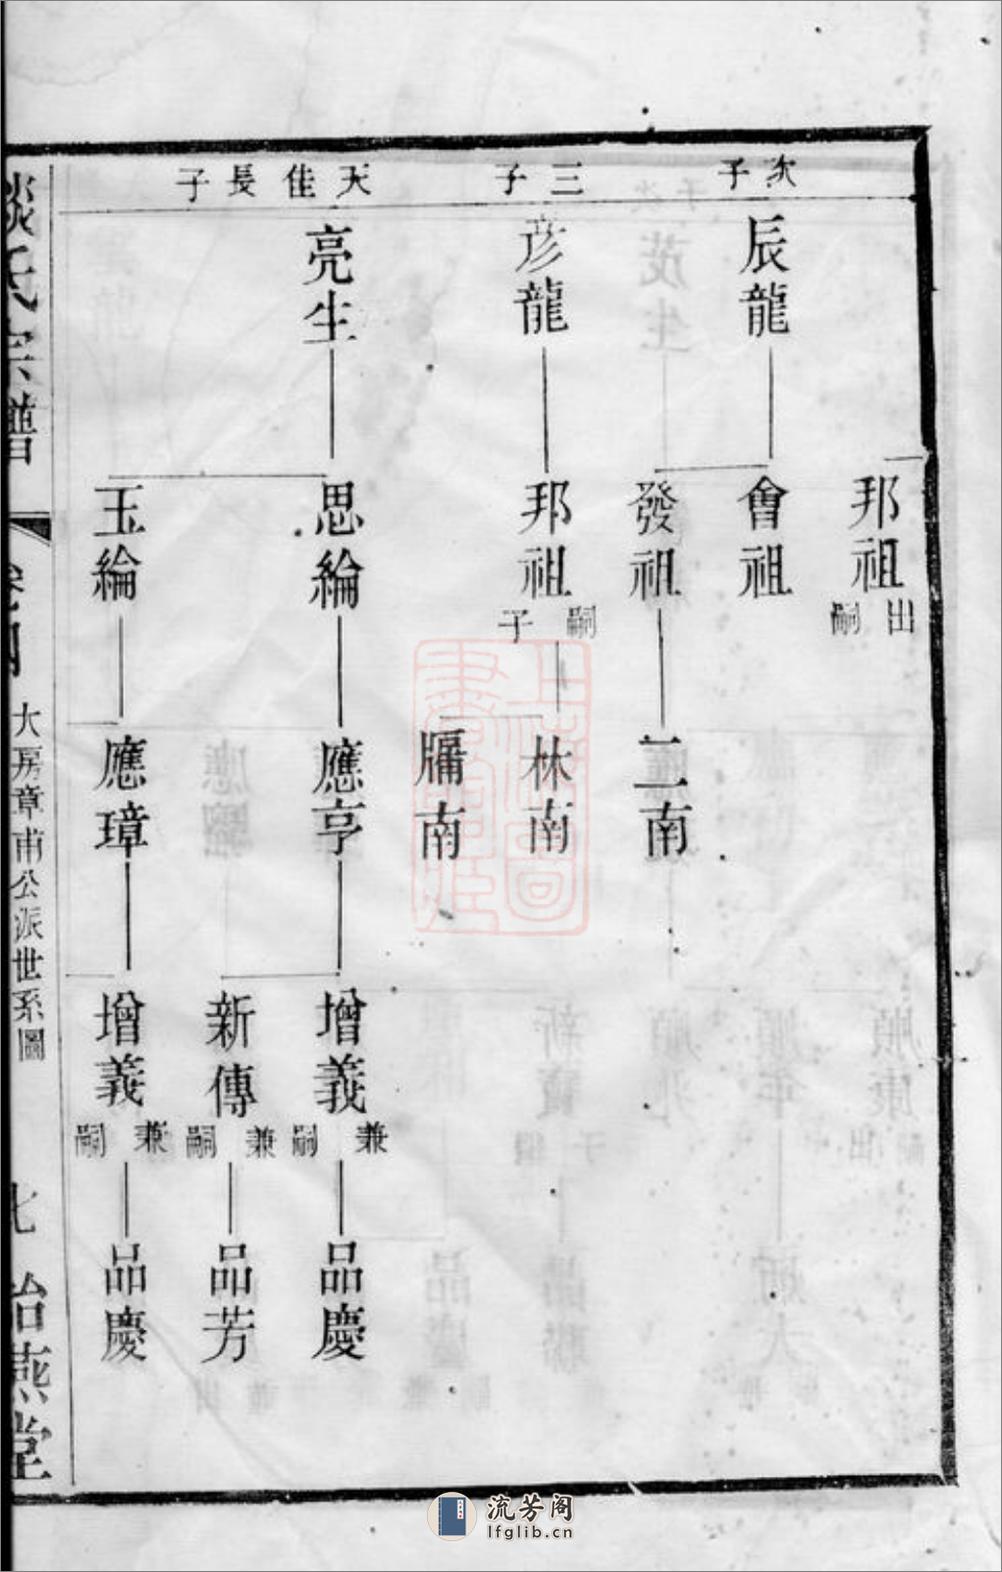 次子
辰龍
邦祖
出嗣
會祖
發祖
二南
三子
彦龍
邦祖
嗣子
林南
南
天佳長子
亮生
思綸
應亨
增義
兼嗣
品慶
新傳
兼嗣
品芳
玉綸
應璋
增義
兼嗣
品慶
氏宗譜
大房章甫公派世系圖
七
燕堂
上海圖書館藏
流芳阁
lfglib.cn